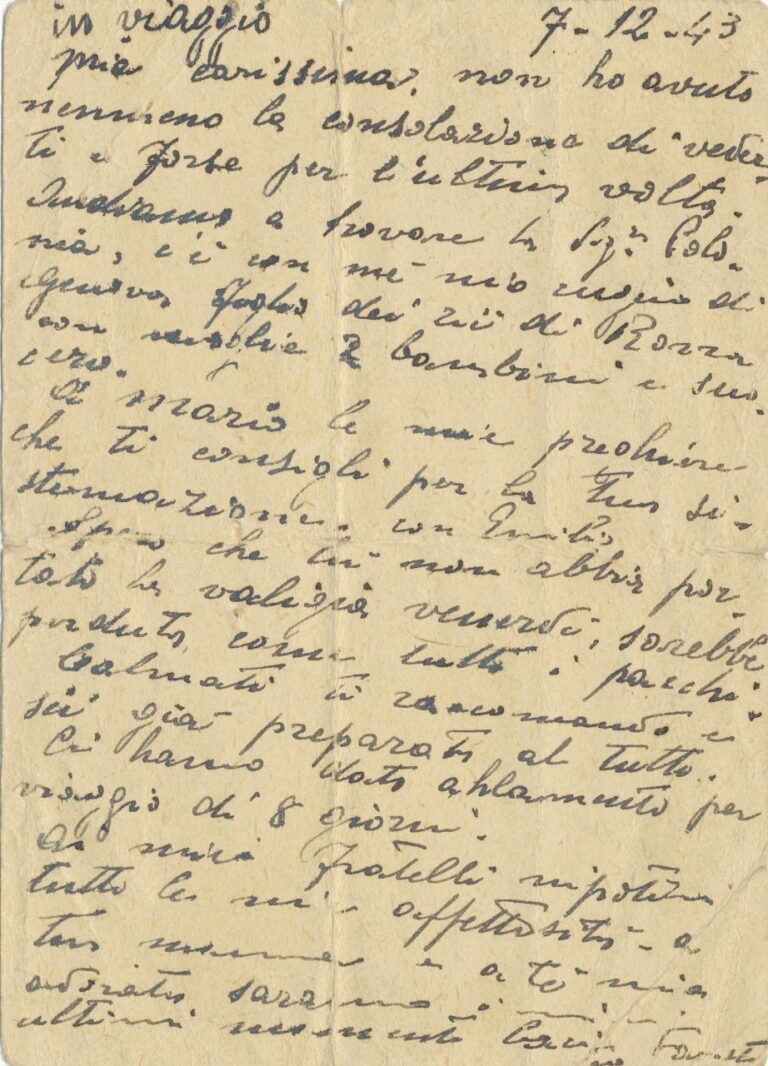 in viaggio 7-12-43
mia carissima, non ho avuto
nemmeno la consolazione di veder-
ti e forse per l'ultima volta.
Andiamo a trovare la Sig.ra Polo-
nia, c'è con me mio cugino di
Genova, figlio dei zii di
con moglie 2 bambini e suo-
cero.
A Mario le mie preghiere
che ti consigli per la tua si-
stemazione. con Emilio
Spero che tu non abbia por-
tato la valigia venerdì, sarebbe
perduta come tutti i pacchi.
Calmati ti raccomando e
sii già preparata al tutto.
Ci hanno dato ahlamento per
viaggio di 8 giorni.
Ai miei fratelli nipotini
tutte le mie affettosità - a
tua mamma e a te mia
adorata saranno i miei
ultimi momenti Baci